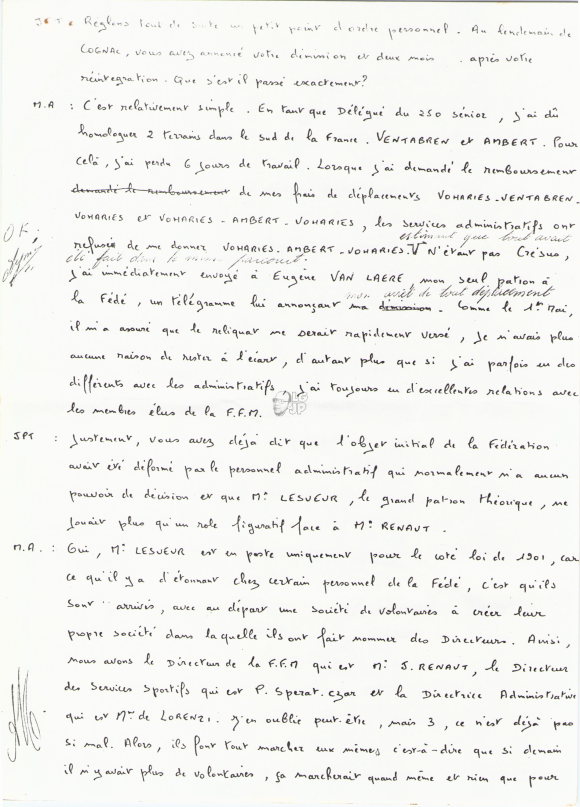 JPT : Reglons tout de suite un petit point d'ordre personnel. Au lendemain de
COGNAC, vous avez annoncé votre démission et deux mois . après votre
réintegration. Que s'est il passé exactement?
M.A : C'est relativement simple. En tant que Délégué du 250 sénior, j'ai dû
homologuer 2 terrains dans le Sud de la France. VENTABREN et AMBERT. Pour
celà, j'ai perdu 6 jours de travail. Lorsque j'ai demandé le remboursement
demandé le remboursement de mes frais de déplacements VOHARIES-VENTABREN-
VOHARIES et VOHARIES - AMBERT - VOHARIES, les services administratifs ont
OK
estiment que tout avait
refusés de me donner VOHARIES-AMBERT-VOHARIES. N'étant pas Crésus,
été fait dans le même parcours.
j'ai immédiatement envoyé à Eugène VAN LAERE mon seul patron à
mon arrêt de tout déplacement
la Fédé, un télégramme lui annonçant ma démission. Comme le 1er Mai,
il m'a assuré que le reliquat me serait rapidement versé, je n'avais plus
aucune raison de rester à l'écart, d'autant plus que si j'ai parfois eu des
différents avec les administratifs, j'ai toujours eu d'excellentes relations avec
les membres élus de la F.F.M.
LG
JP
JPT : Justement, vous avez déjà dit que l'objet initial de la Fédération
avait été déformé par le personnel administratif qui normalement n'a aucun
pouvoir de décision et que Mr LESUEUR, le grand patron théorique, ne
jouait plus qu'un role figuratif face à Mr RENAUT.
M.A. : Oui, Mr LESUEUR est en poste uniquement pour le coté loi de 1901, car
ce qu'il y a d'étonnant chez certain personnel de la Fédé, c'est qu'ils
sont arrivés, avec au départ une société de volontaires à créer leur
propre société dans laquelle ils ont fait nommer des Directeurs. Ainsi,
nous avons le Directeur de la F.F.M qui est Mr J. RENAUT, le Directeur
des Services Sportifs qui est P. Sperat-Czar et la Directrice Administrative
qui est Mme de LORENZI. J'en oublie peut-être, mais 3, ce n'est déjà pas
si mal. Alors, ils font tout marcher eux mêmes c'est-à-dire que si demain
il n'y avait plus de volontaires, ça marcherait quand même et rien que pour